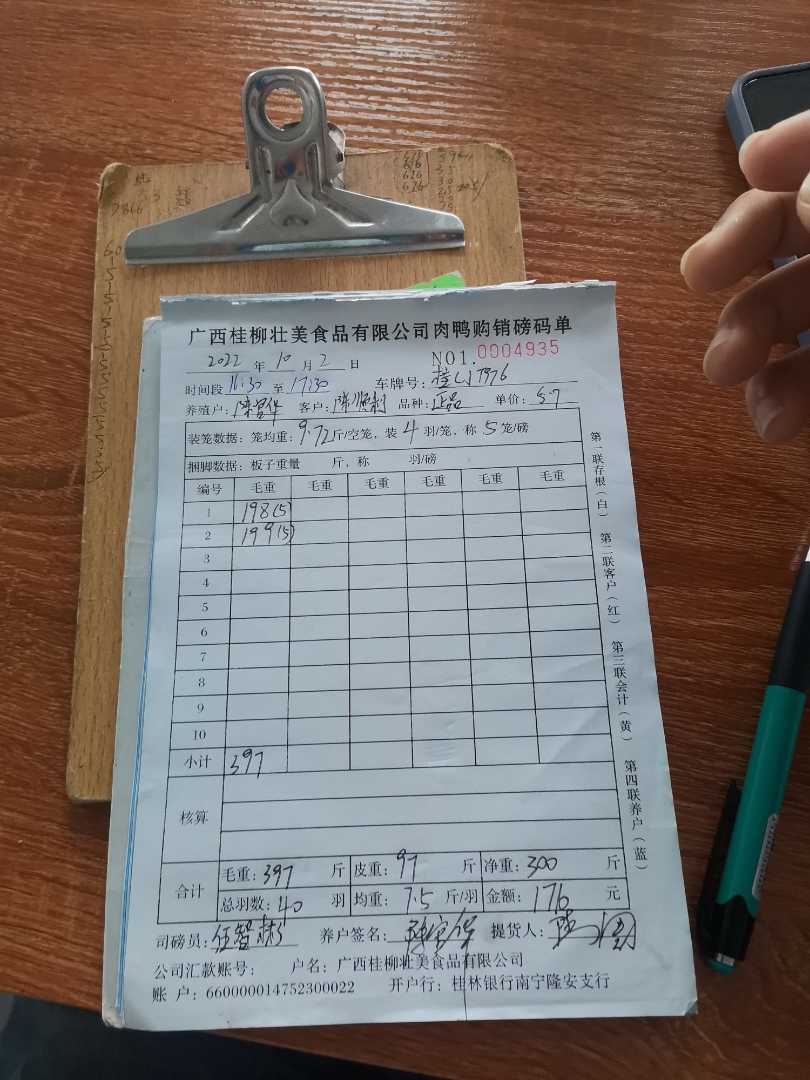 广西桂柳壮美食品有限公司肉鸭购销磅码单
2022 年 10 月 2 日 NO1. 0004935
时间段 16:30 至 17:30 车牌号: 桂
养殖户: 客户: 陈顺利 品种: 正品 单价: 5.7
装笼数据: 笼均重: 9.72 斤/空笼, 装 4 羽/笼, 称 5 笼/磅
捆脚数据: 板子重量 斤, 称 羽/磅
编号 毛重 毛重 毛重 毛重 毛重 毛重
1 198(5)
2 199(5)
3
4
5
6
7
8
9
10
小计 397
核算
合计 毛重: 397 斤 皮重: 97 斤 净重: 300 斤
总羽数: 40 羽 均重: 7.5 斤/羽 金额: 元
司磅员: 养户签名: 提货人:
公司汇款账号: 户名: 广西桂柳壮美食品有限公司
账 户: 660000014752300022 开户行: 桂林银行南宁隆安支行
第一联存根(白) 第二联客户(红) 第三联会计(黄) 第四联养户(蓝)